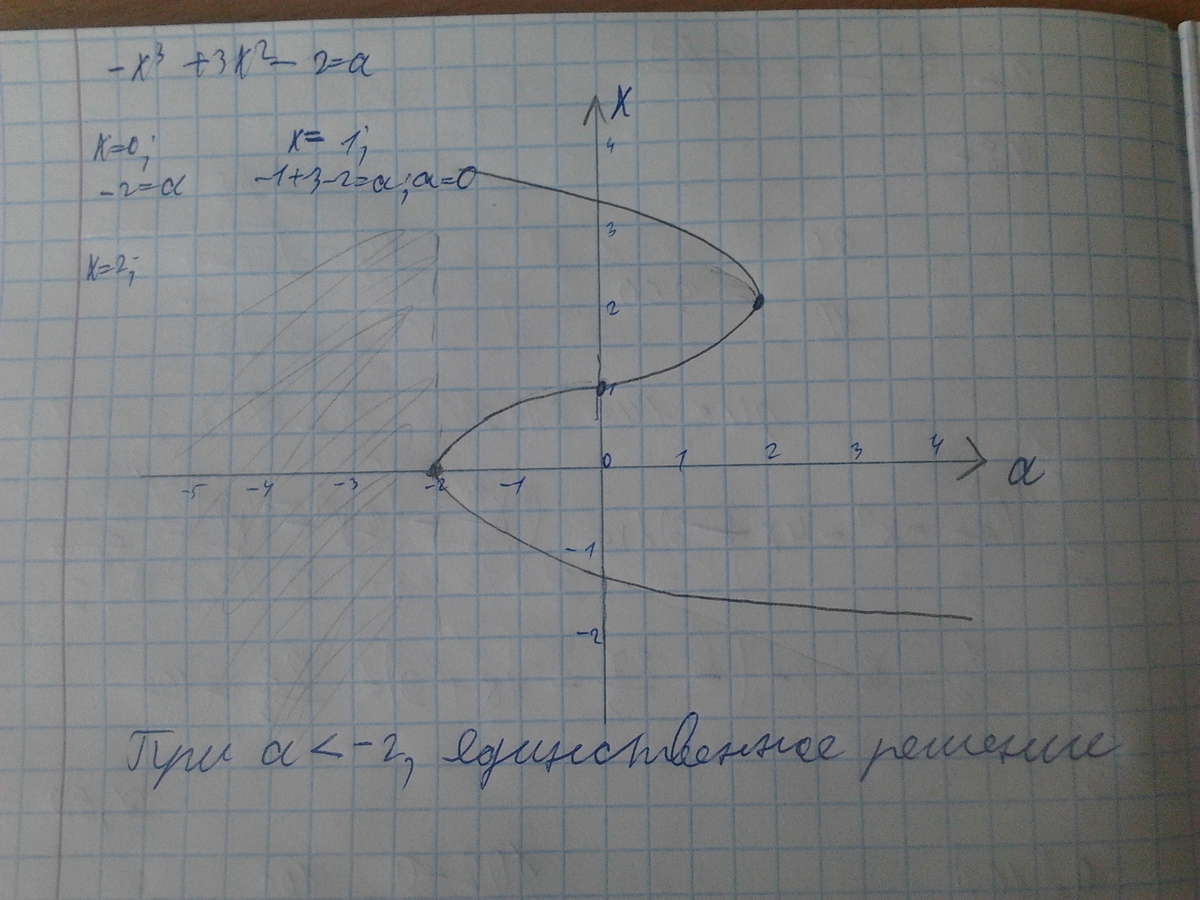 -x³ + 3x² - 2 = a
x=0;
-2=a
x= 1;
-1+3-2=a; a=0
x=2;
x
4
3
2
1
0
-5 -4 -3 -2 -1 1 2 3 4
a
-1
-2
При a < -2, единственное решение